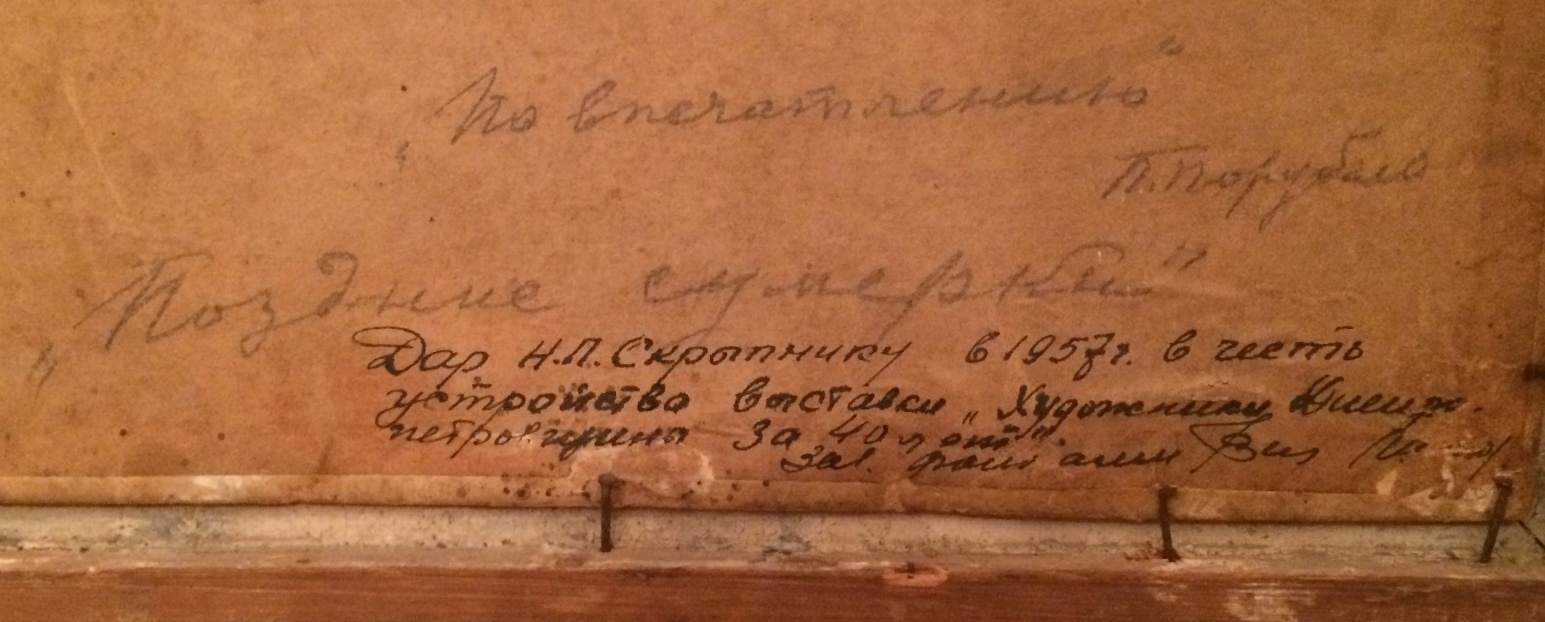 „По впечатлению"
П. Порубаев
„Поздние сумерки"
Дар Н.П. Скрыпнику в 1957г. в честь
устройства выставки „Художники Днепро-
петровщины за 40 лет".